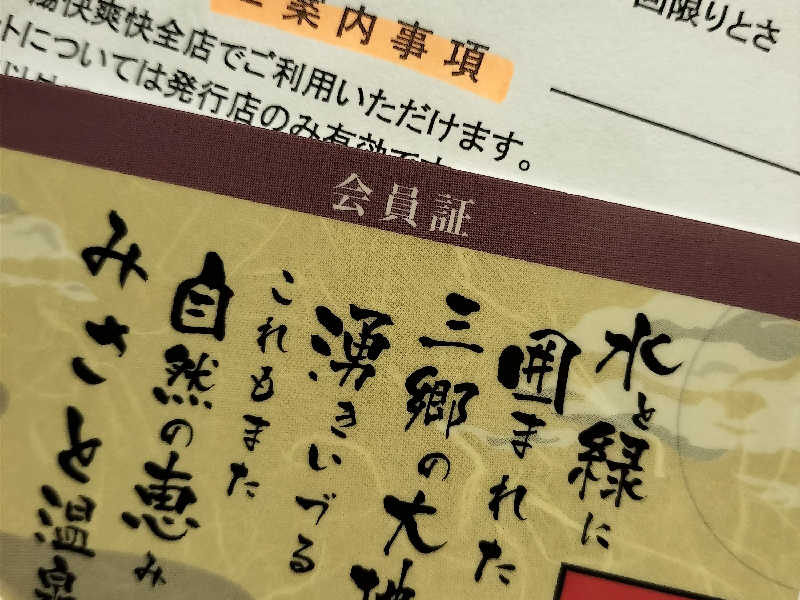 案内事項
回限りとさ
快爽快全店でご利用いただけます。
トについては発行店のみ有効です
会員証
水と緑に
囲まれた
三郷の大地
湧きいづる
これもまた
自然の恵み
みさと温泉